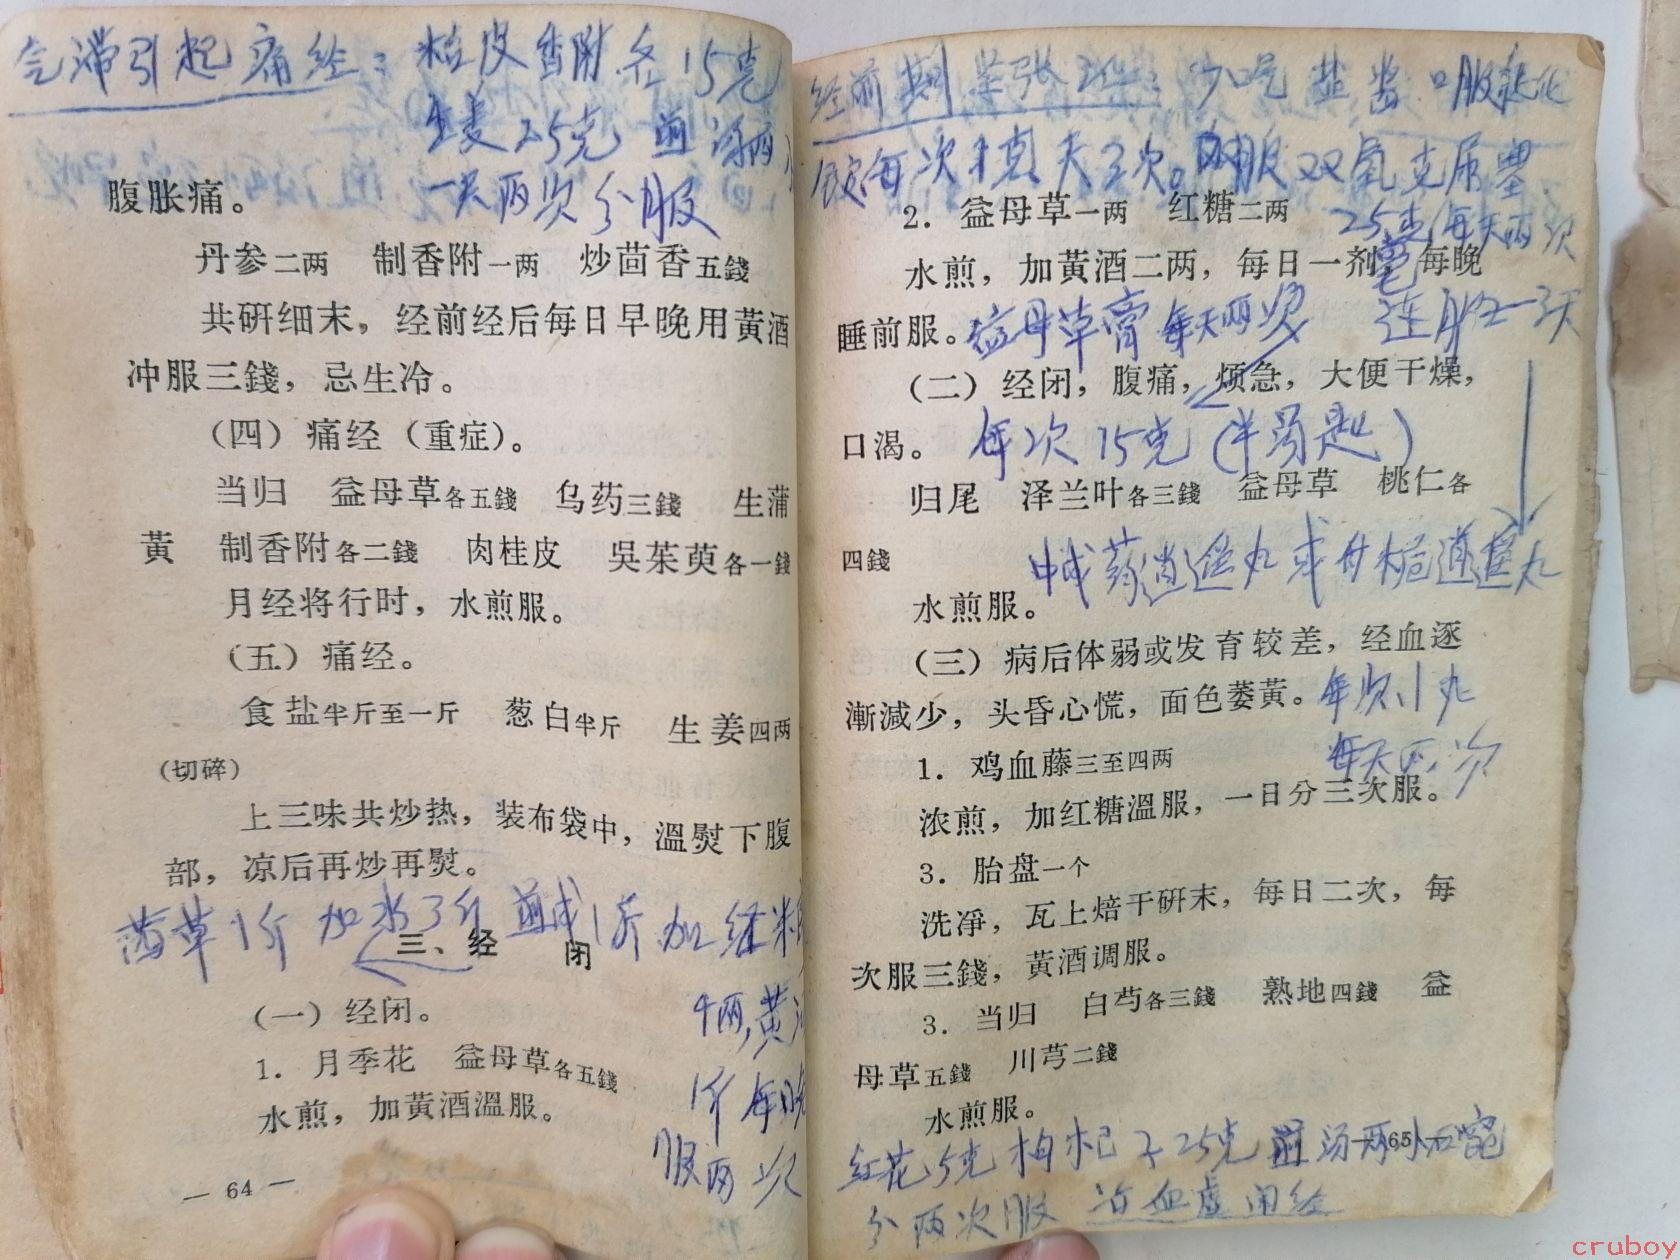 气滞引起痛经：桔皮香附各15克
生姜25克 煎汤两
一天两次分服
腹胀痛。
丹参二两 制香附一两 炒茴香五錢
共研细末，经前经后每日早晚用黄酒
冲服三錢，忌生冷。
（四）痛经（重症）。
当归 益母草各五錢 乌药三錢 生蒲
黄 制香附各二錢 肉桂皮 吳茱萸各一錢
月经将行时，水煎服。
（五）痛经。
食盐半斤至一斤 葱白半斤 生姜四两
（切碎）
上三味共炒热，装布袋中，溫熨下腹
部，凉后再炒再熨。
草1斤 加水3斤 煎成1斤 加红糖
三、经 闭
4两，黄酒
（一）经闭。
1斤 每日晚
1. 月季花 益母草各五錢
水煎，加黄酒溫服。
服两次
— 64 —
经前期紧张症：少吃盐酱 口服氯化
每次1克 天3次。口服双氢克尿塞
25毫克 每天两次
2. 益母草一两 红糖二两
水煎，加黄酒二两，每日一剂，每晚
睡前服。益母草膏 每天两次 连服一3天
（二）经闭，腹痛，烦急，大便干燥，
口渴。 每次15克（半汤匙）
归尾 泽兰叶各三錢 益母草 桃仁各
四錢 中成药逍遥丸或丹栀逍遥丸
水煎服。
（三）病后体弱或发育较差，经血逐
漸減少，头昏心慌，面色萎黄。每次1丸
每天两次
1. 鸡血藤三至四两
浓煎，加红糖溫服，一日分三次服。
3. 胎盘一个
洗凈，瓦上焙干研末，每日二次，每
次服三錢，黄酒调服。
3. 当归 白芍各三錢 熟地四錢 益
母草五錢 川芎二錢
水煎服。
65 —
红花5克 枸杞子25克 煎汤两小碗
分两次服 治血虚闭经
cruboy